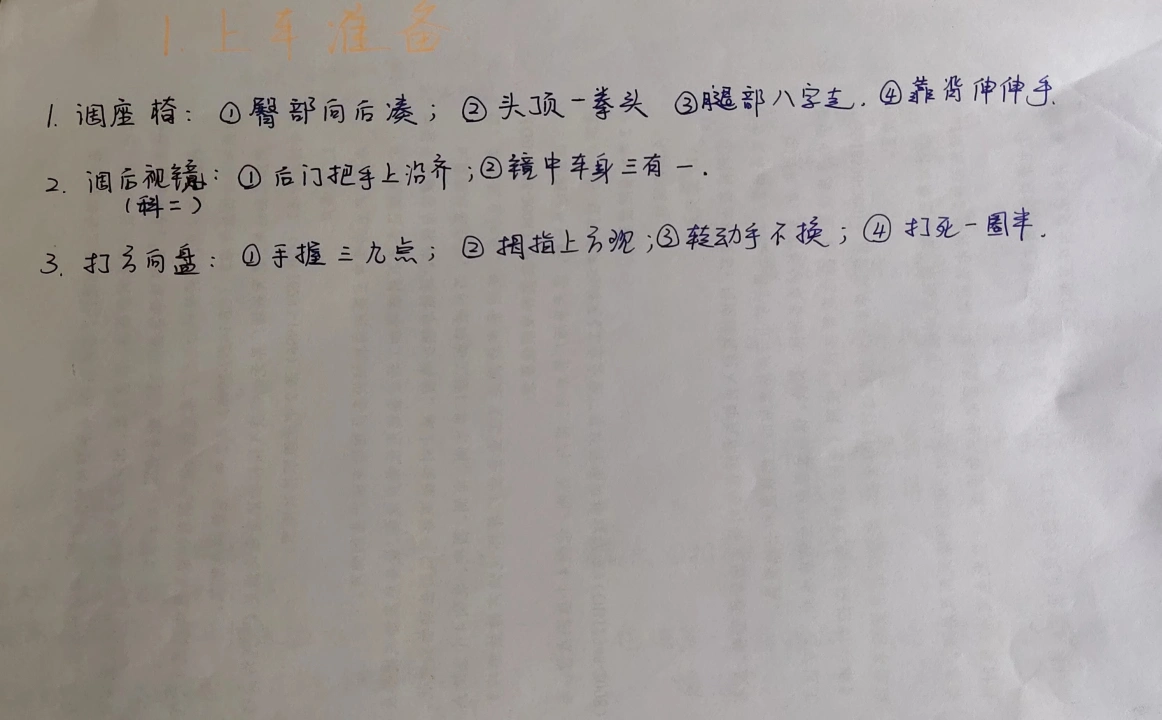 1.上车准备
1. 调座椅：①臀部向后凑；②头顶一拳头 ③腿部八字走.④靠背伸伸手.
2. 调后视镜：①后门把手上沿齐；②镜中车身三有一.
(科二)
3. 打方向盘：①手握三九点；②拇指上方观；③转动手不换；④打死一圈半.